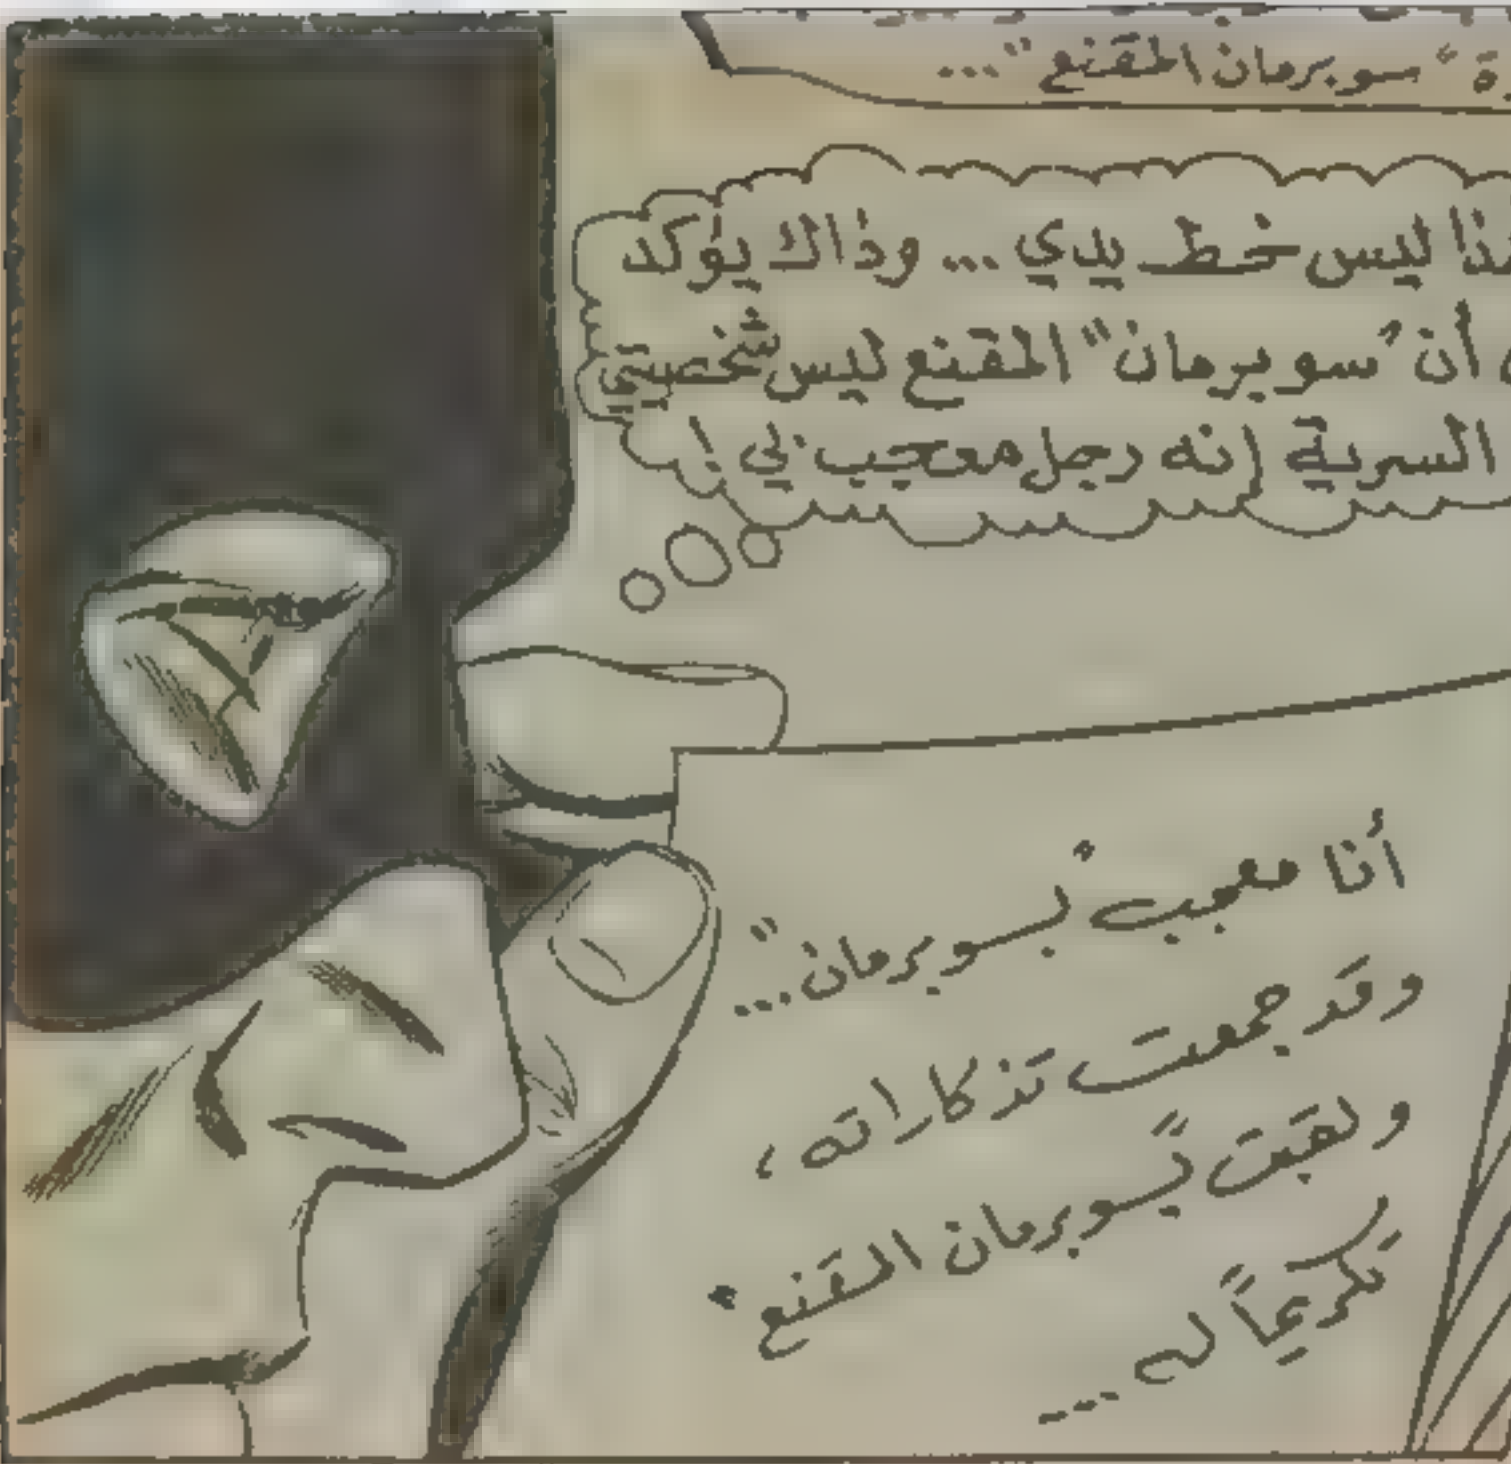 "سوبرمان المقنع"...
ليس خط يدي... وذاك يؤكد
أن "سوبرمان" المقنع ليس شخصيتي
السرية إنه رجل معجب بي!
أنا معجب "بسوبرمان"...
وقد جمعت تذكاراته،
ولقبت "بسوبرمان المقنع"
تكريماً له...